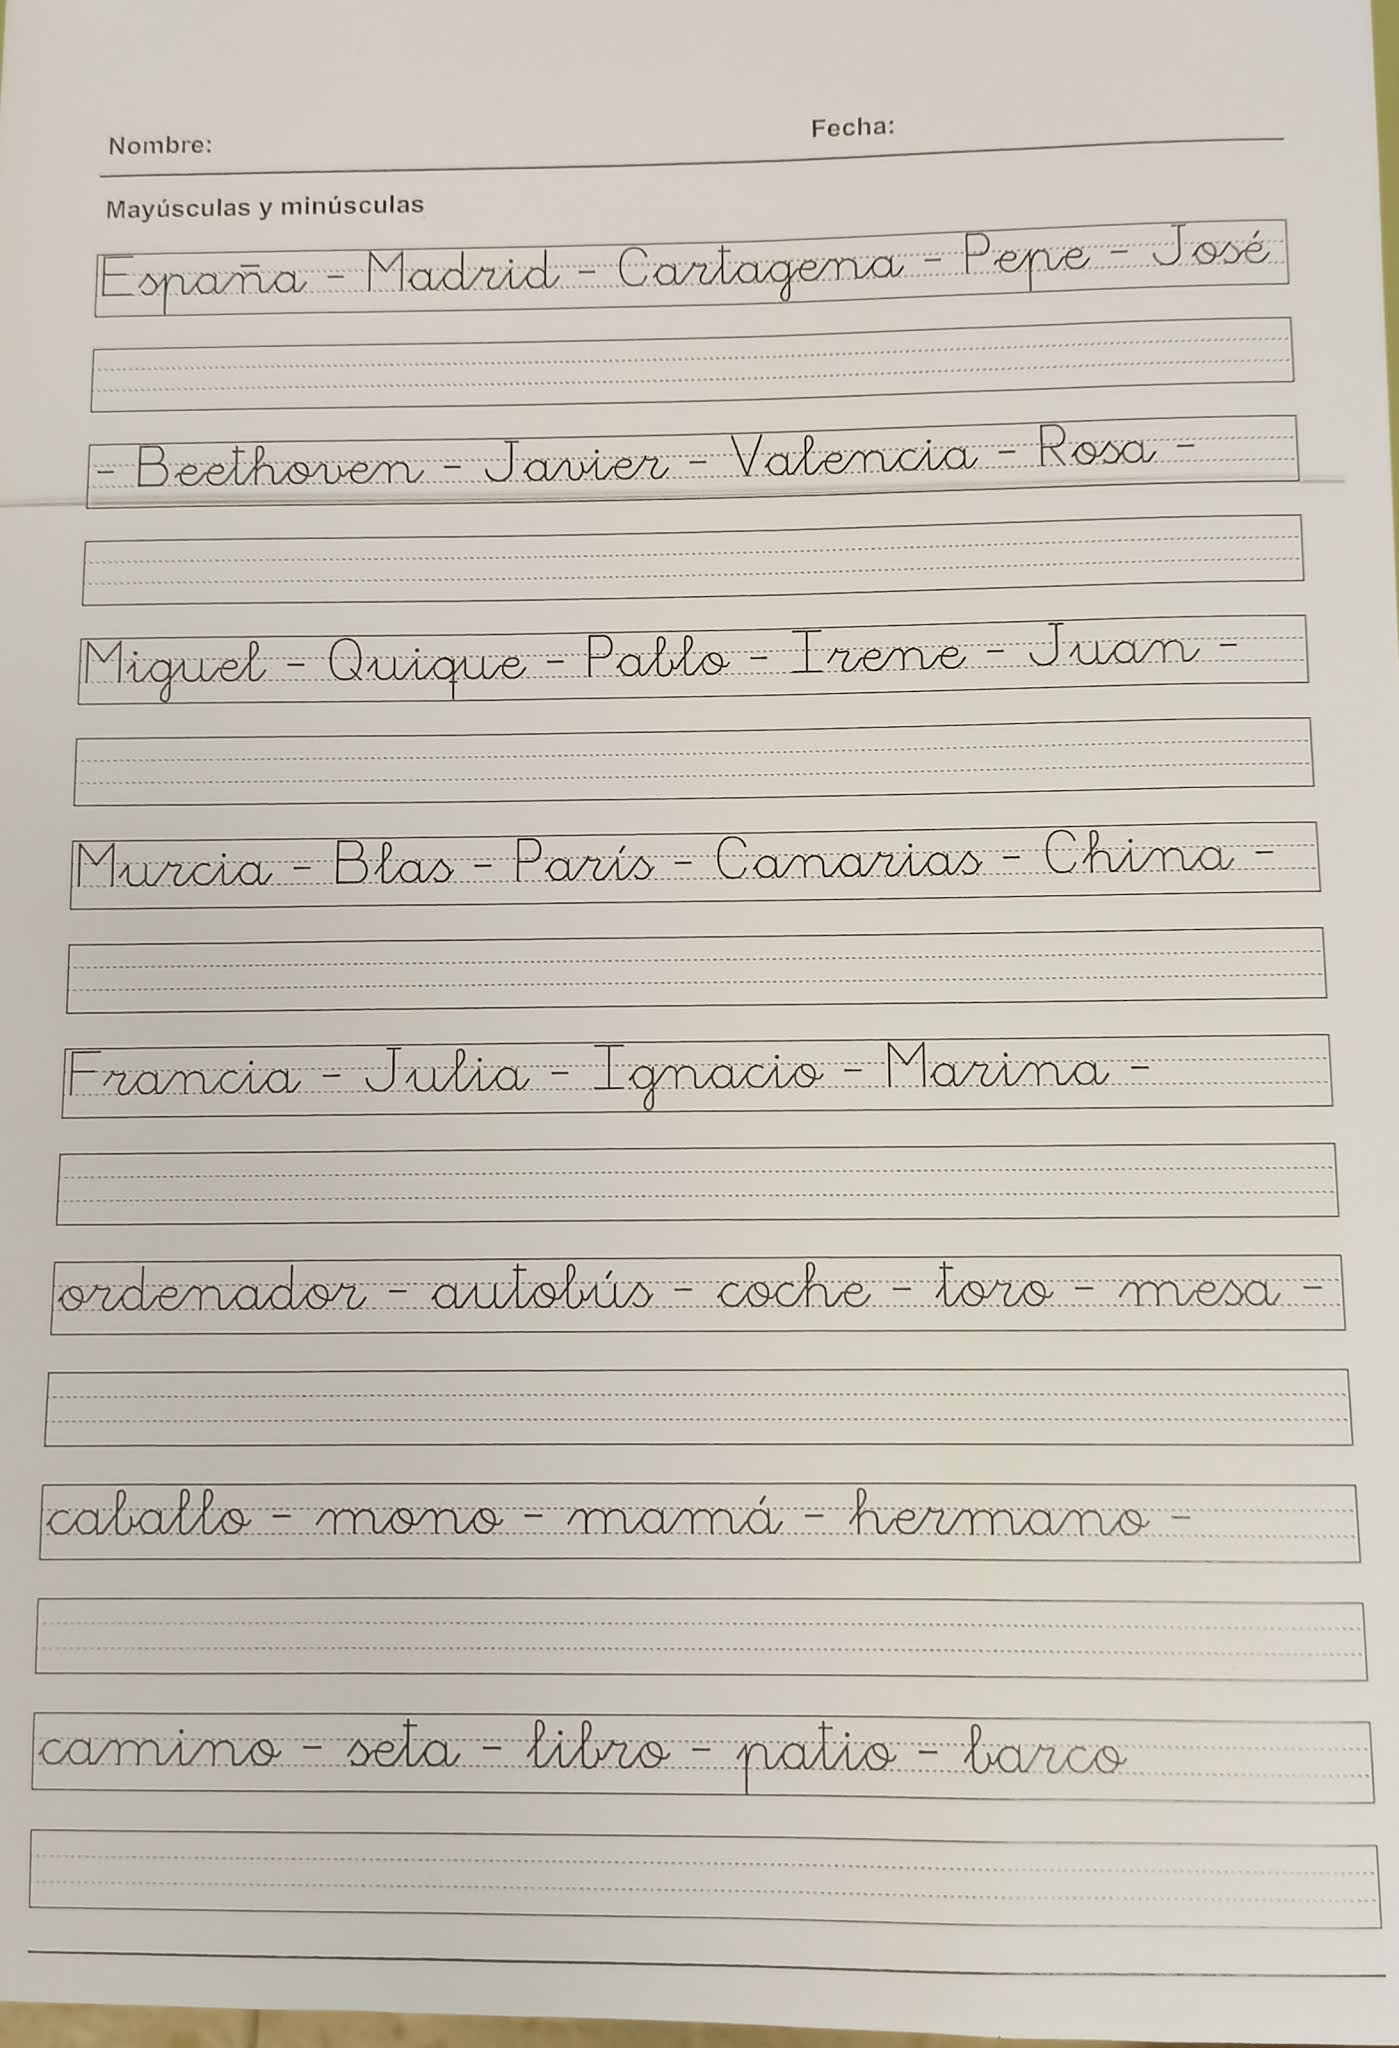 Nombre: Fecha:
Mayúsculas y minúsculas
España - Madrid - Cartagena - Pepe - José
- Beethoven - Javier - Valencia - Rosa -
Miguel - Quique - Pablo - Irene - Juan -
Murcia - Blas - París - Canarias - China -
Francia - Julia - Ignacio - Marina -
ordenador - autobús - coche - toro - mesa -
caballo - mono - mamá - hermano -
camino - seta - libro - patio - barco